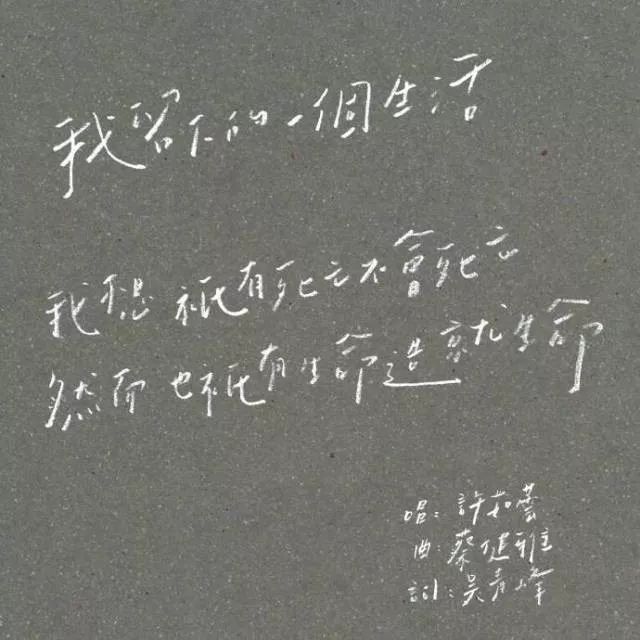 我留下的一個生活
我想 祇有死亡不會死亡
然而 也祇有生命造就生命
唱：許茹芸
曲：蔡健雅
詞：吳青峰